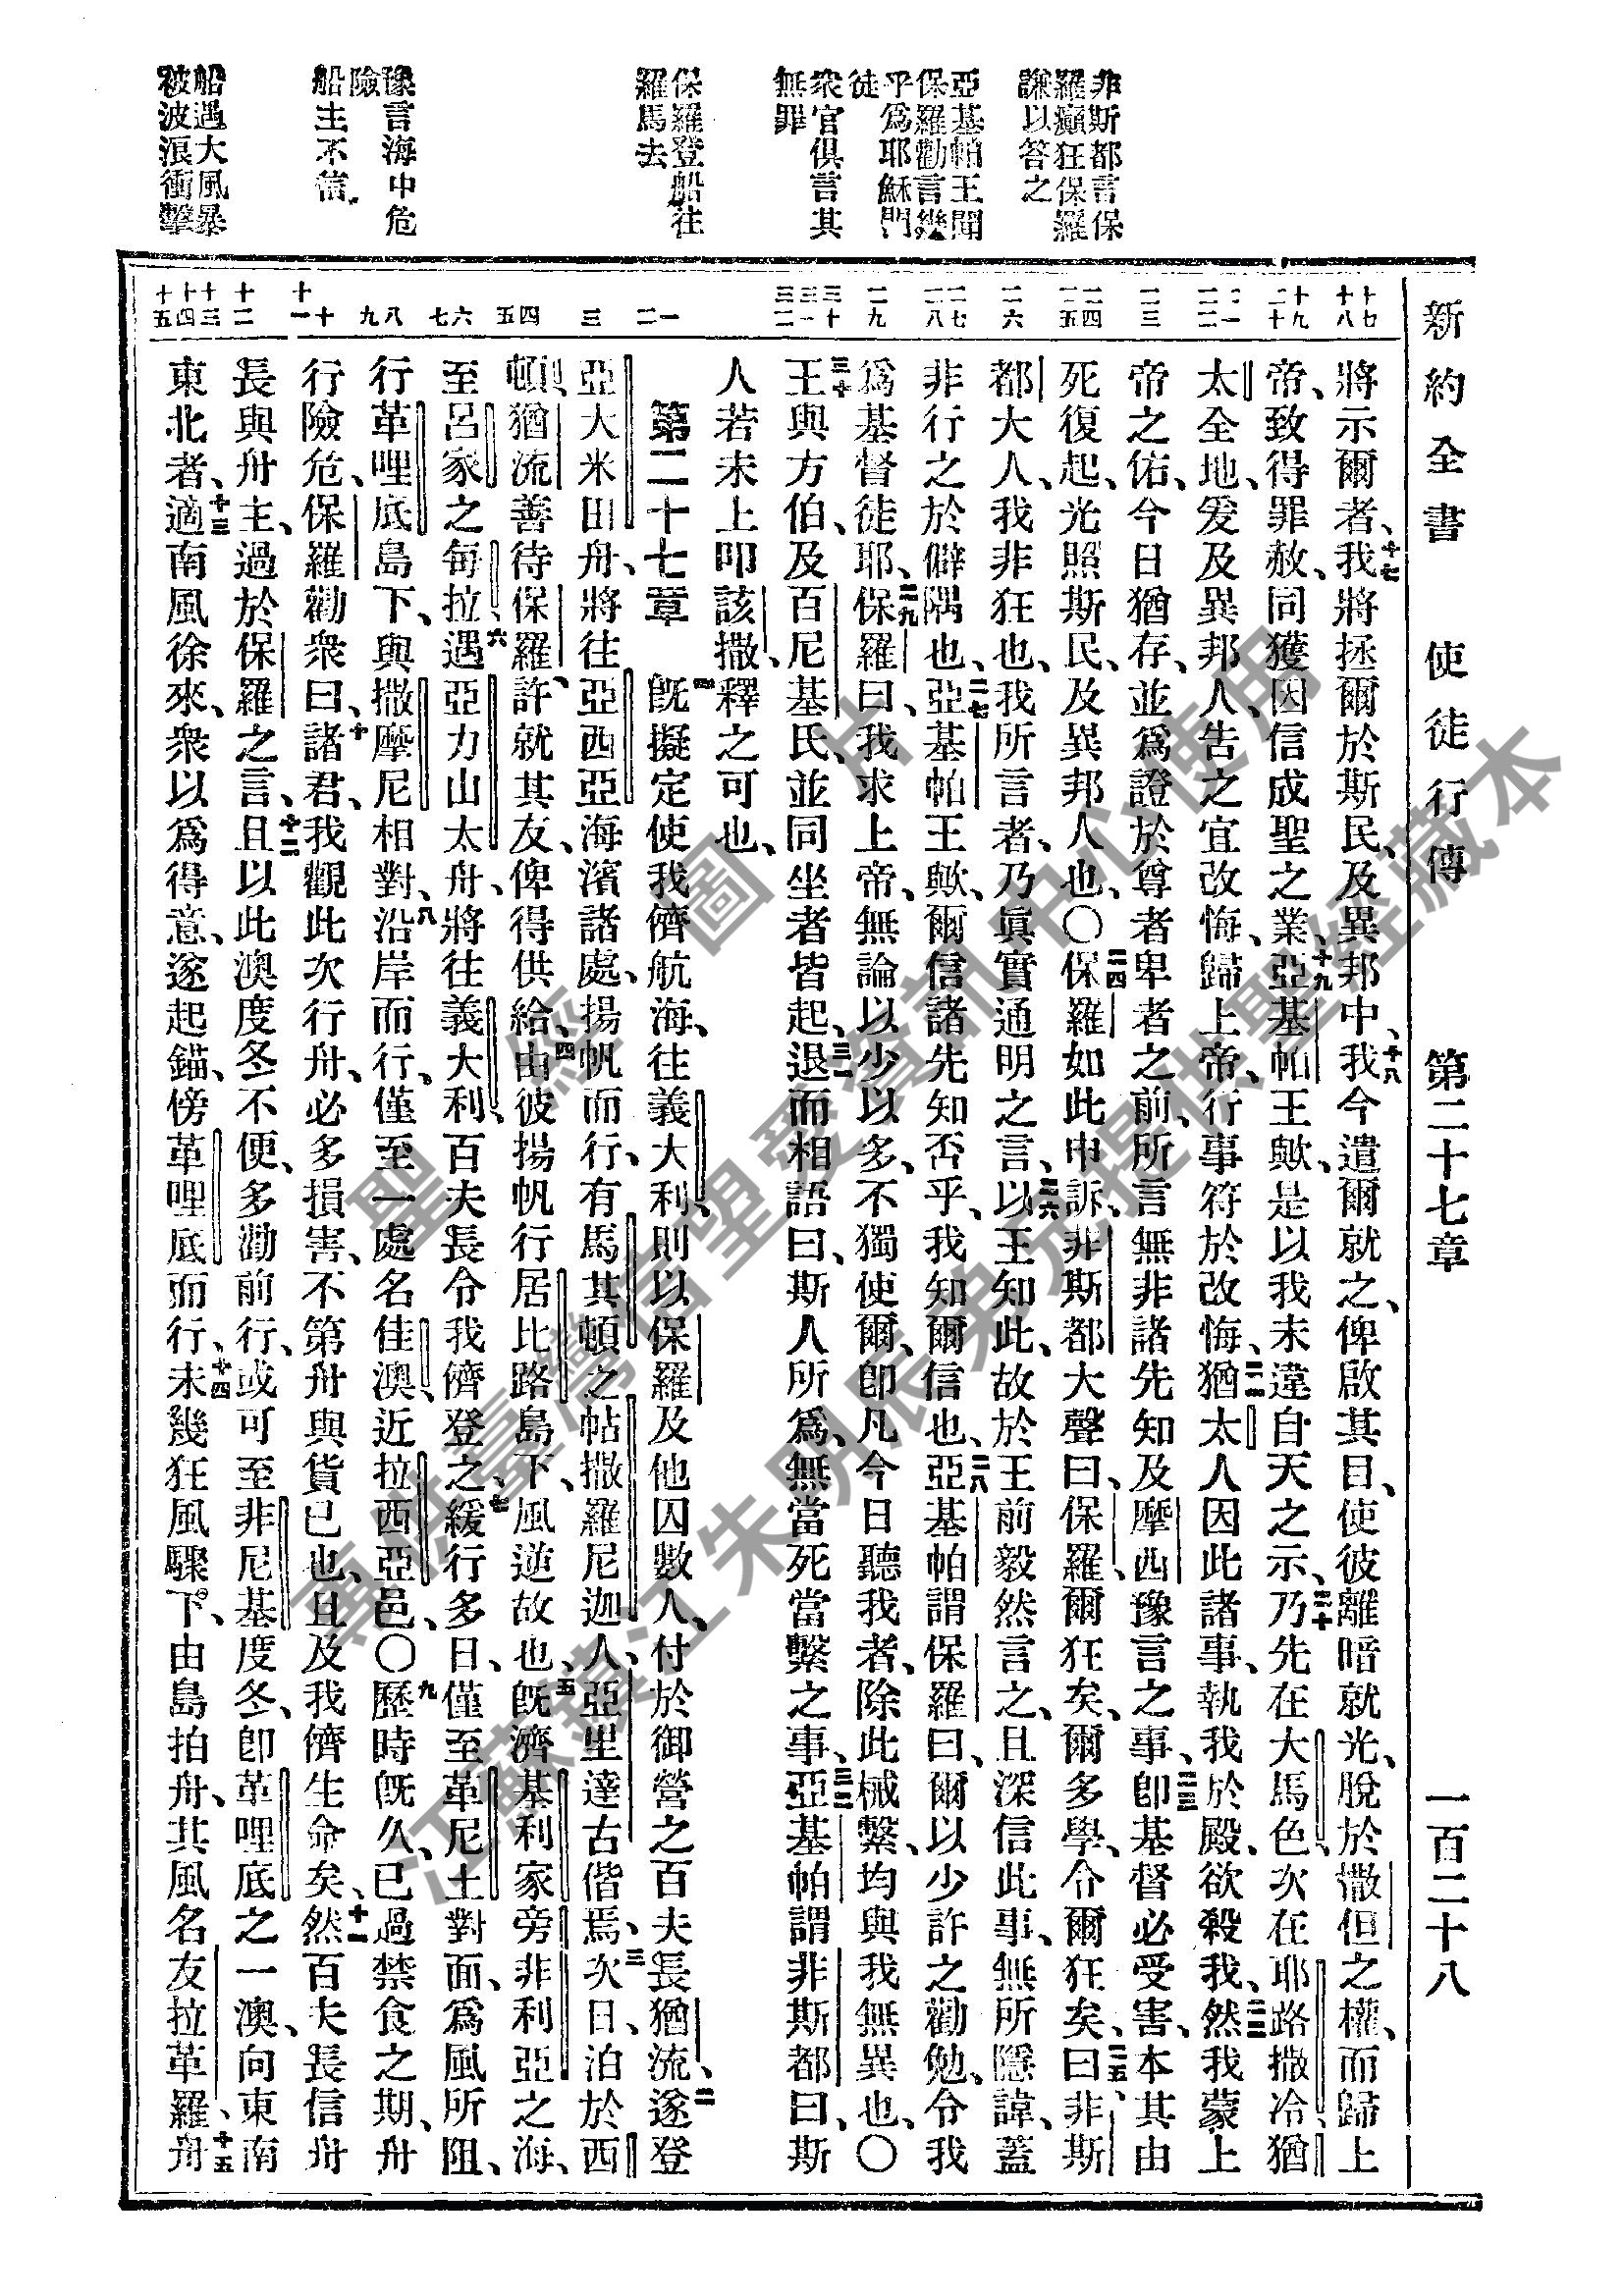 新約全書 使徒行傳 第二十七章 一百二十八
非斯都言保
羅癲狂保羅
謙以答之
亞基帕王聞
保羅勸言幾
乎爲耶穌門
徒
衆官俱言其
無罪
保羅登船往
羅馬去
豫言海中危
險
船主不信
船遇大風暴
被波浪衝擊
十七 十八
十九 二十
二一 二二
二三
二四 二五
二六
二七 二八
二九
三十 三一 三二
一 二
三
四 五
六 七
八 九
十 十一
十二
十三 十四 十五
將示爾者、十七我將拯爾於斯民、及異邦中、十八我今遣爾就之、俾啟其目、使彼離暗就光、脫於撒但之權、而歸上
帝、致得罪赦、同獲因信成聖之業、十九亞基帕王歟、是以我未違自天之示、二十乃先在大馬色、次在耶路撒冷、猶
太全地、爰及異邦人、告之宜改悔、歸上帝、行事符於改悔、二一猶太人因此諸事、執我於殿、欲殺我、二二然我蒙上
帝之佑、今日猶存、並爲證於尊者卑者之前、所言無非諸先知及摩西豫言之事、二三卽基督必受害、本其由
死復起、光照斯民、及異邦人也、〇二四保羅如此申訴、非斯都大聲曰、保羅、爾狂矣、爾多學、令爾狂矣、二五曰、非斯
都大人、我非狂也、我所言者、乃眞實通明之言、二六以王知此、故於王前毅然言之、且深信此事、無所隱諱、蓋
非行之於僻隅也、二七亞基帕王歟、爾信諸先知否乎、我知爾信也、二八亞基帕謂保羅曰、爾以少許之勸勉、令我
爲基督徒耶、二九保羅曰、我求上帝、無論以少以多、不獨使爾、卽凡今日聽我者、除此械繫、均與我無異也、〇
三十王與方伯、及百尼基氏、並同坐者皆起、三一退而相語曰、斯人所爲、無當死當繫之事、三二亞基帕謂非斯都曰、斯
人若未上叩該撒、釋之可也、
第二十七章 一旣擬定使我儕航海、往義大利、則以保羅及他囚數人、付於御營之百夫長猶流、二遂登
亞大米田舟、將往亞西亞海濱諸處、揚帆而行、有馬其頓之帖撒羅尼迦人、亞里達古偕焉、三次日、泊於西
頓、猶流善待保羅、許就其友、俾得供給、四由彼揚帆行居比路島下、風逆故也、五旣濟基利家旁非利亞之海、
至呂家之每拉、六遇亞力山太舟、將往義大利、百夫長令我儕登之、七緩行多日、僅至革尼土對面、爲風所阻、
行革哩底島下、與撒摩尼相對、八沿岸而行、僅至一處名佳澳、近拉西亞邑、〇九歷時旣久、已過禁食之期、舟
行險危、保羅勸衆曰、十諸君、我觀此次行舟、必多損害、不第舟與貨已也、且及我儕生命矣、十一然百夫長信舟
長與舟主、過於保羅之言、十二且以此澳度冬不便、多勸前行、或可至非尼基度冬、卽革哩底之一澳、向東南
東北者、十三適南風徐來、衆以爲得意、遂起錨、傍革哩底而行、十四未幾狂風驟下、由島拍舟、其風名友拉革羅、十五舟
聖經圖片
專供臺灣信望愛資訊中心使用
江蘇鎮江朱明辰弟兄提供聖經藏本